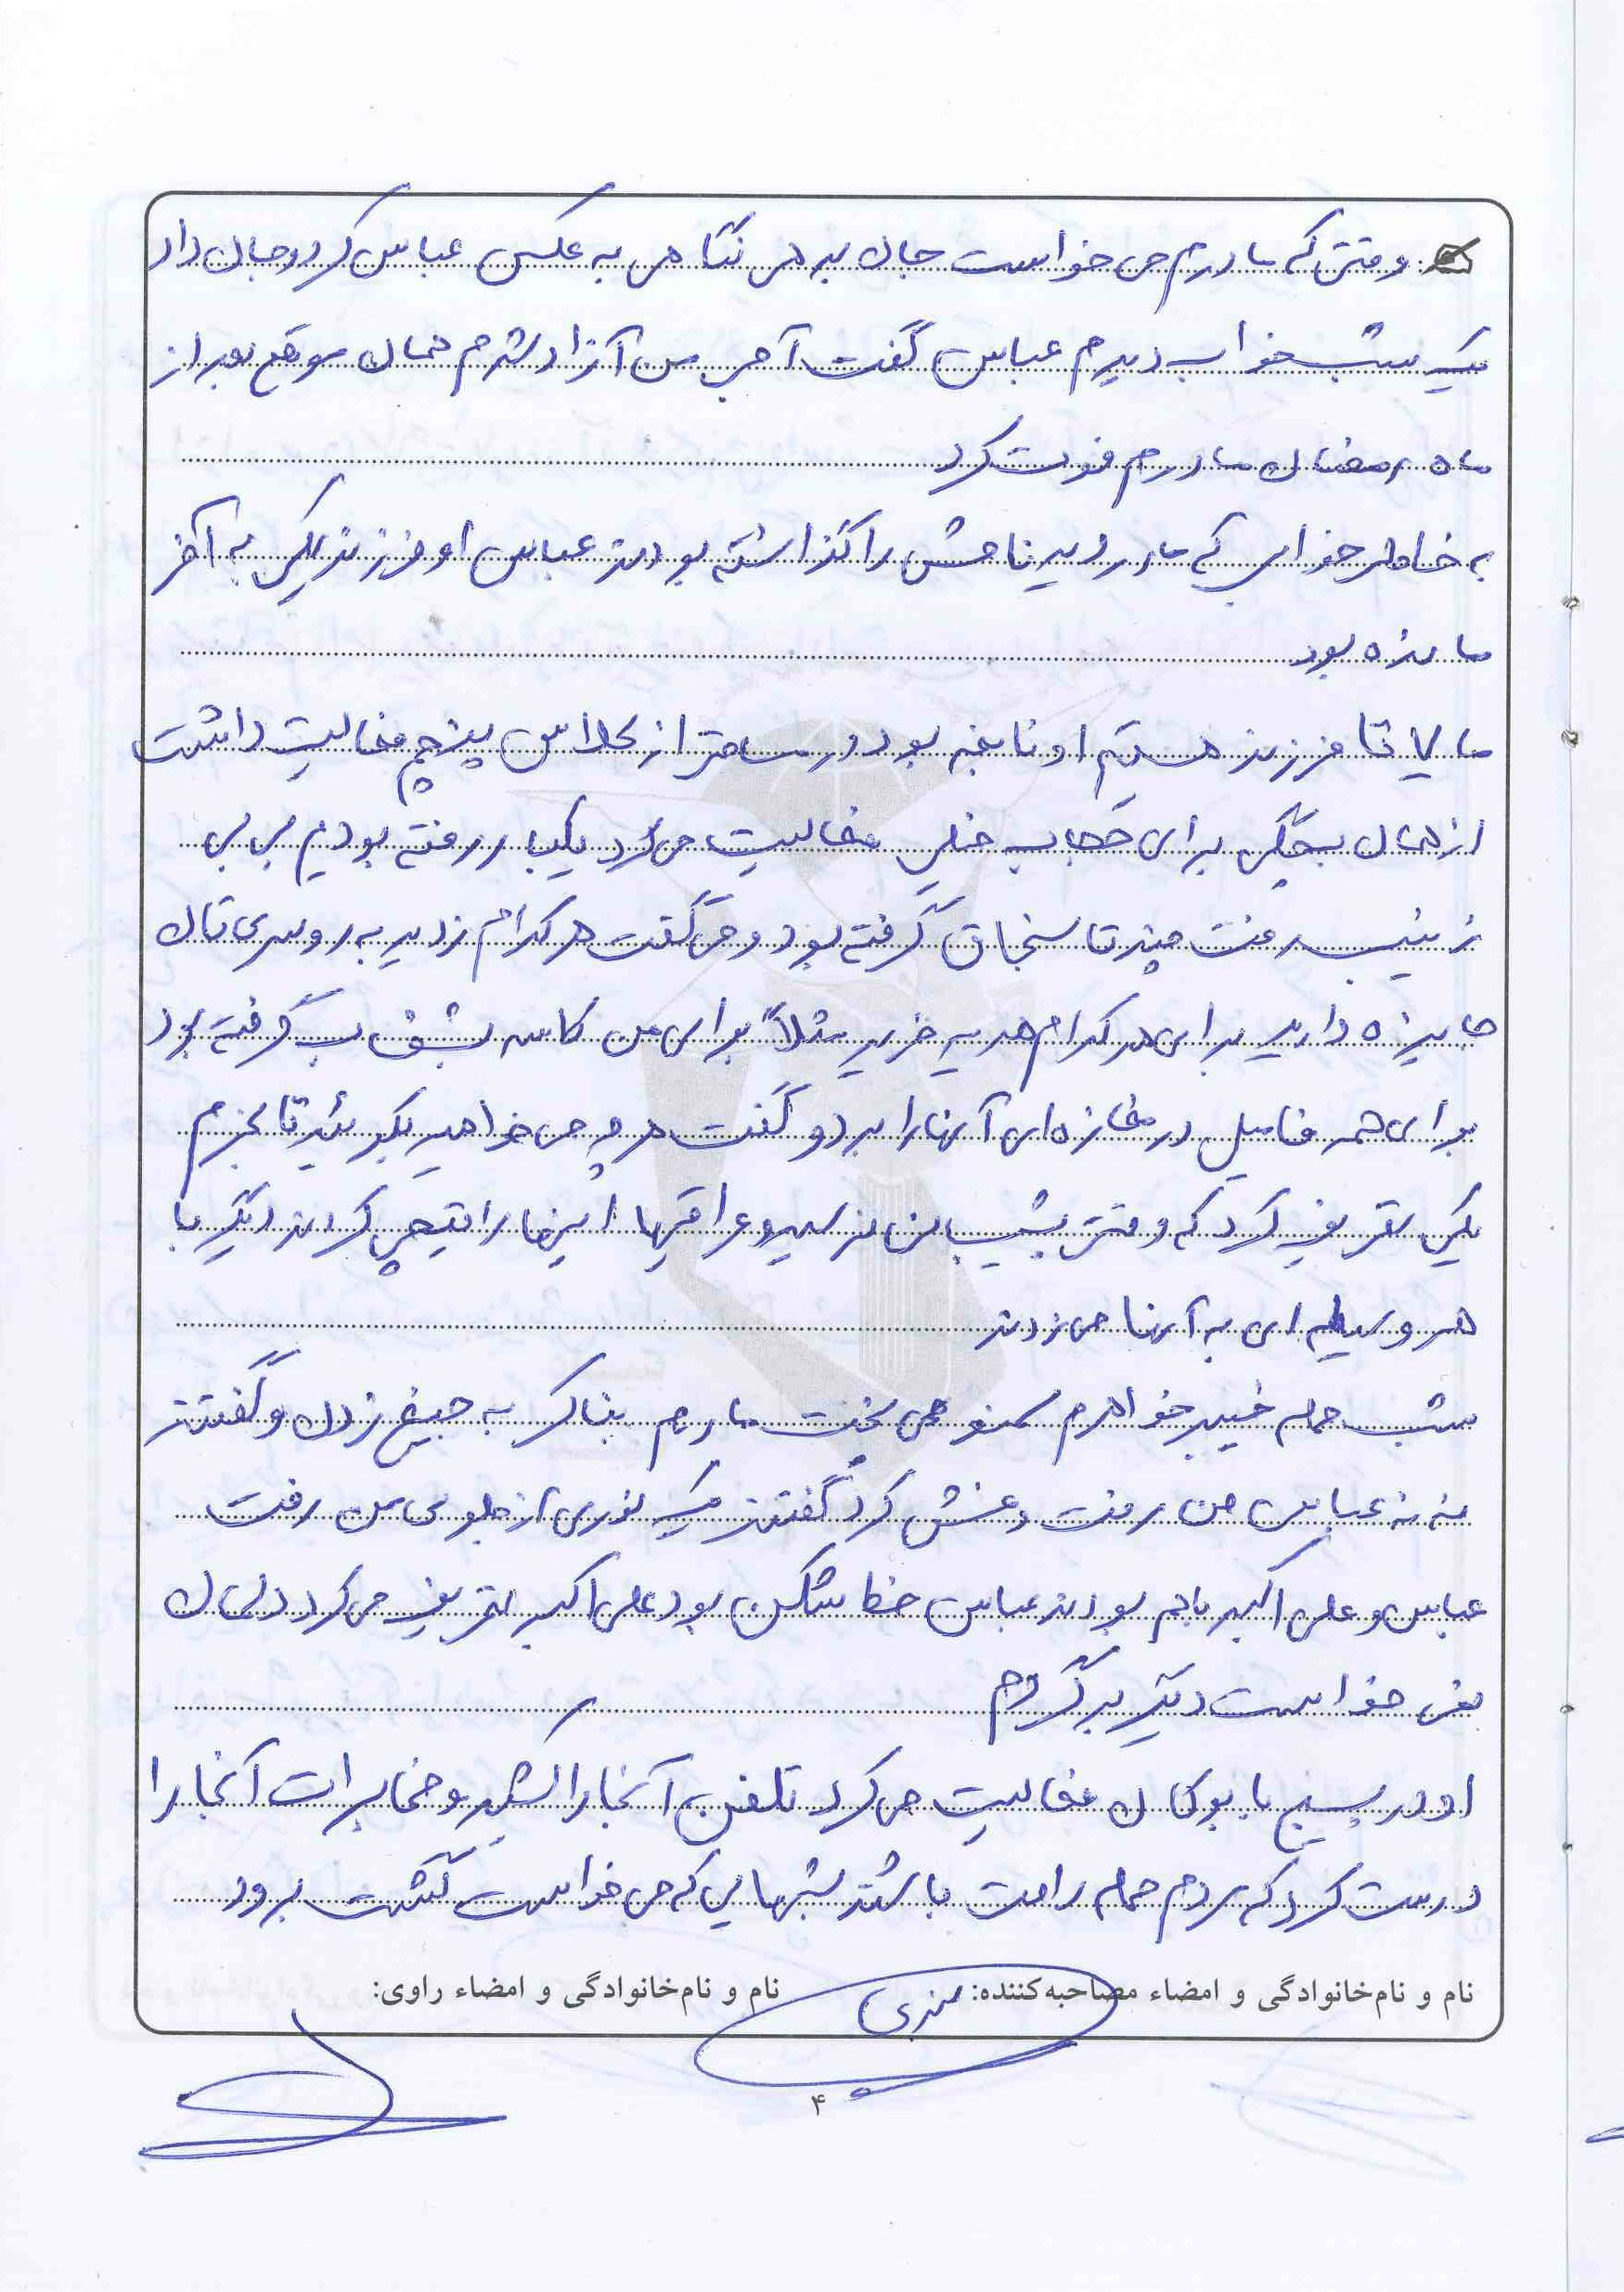 وقتی که مادرم می خواست جان بدهی نگاهی به عکس عباس کرد و جان داد
یک شب خواب دیدم عباس گفت آجی من آزاد شدم همان موقع بعد از
ماه رمضان مادرم فوت کرد
به خاطر خوابی که مادر دید نامش را گذاشته بودند عباس او فرزند یکی به آخر
مانده بود
ما ۷ تا فرزند هستیم او نابغه بود در ساختر از کلاس پنجم فعالیت داشت
از همان بچگی برای حجاب خیلی فعالیت می کرد یکبار رفته بودیم بی بی
زینب رفت چند تا سنجاق گرفته بود و می گفت هر کدام زدید به روسری تان
جایزه دارید برای هر کدام هدیه خرید مثلاً برای من کاسه بشقاب گرفته بود
برای همه فامیل در مغازه ای آنها را برد و گفت هر چه می خواهید بگوئید تا بخرم
یکی تعریف کرد که وقتی پشتیبانی نرسید و عراقیها اینها را قیچی کردند دیگر با
هر وسیله ای به آنها می زدند
شب حمله خیبر خواهرم سمنو می پخت مادرم بنا کرد به جیغ زدن و گفتند
نه نه عباس من رفت و غش کرد گفتند یک نوری از جلوی من رفت
عباس و علی اکبر باهم بودند عباس خط شکن بود علی اکبر تعریف می کرد دلمان
نمی خواست دیگر برگردم
او در بسیج بابوکان فعالیت می کرد تلفن آنجا را کشید و مخابرات آنجا را
درست کرد که مردم محله راحت باشند شبهایی که می خواست گشت برود
نام و نام‌خانوادگی و امضاء مصاحبه‌کننده: نام و نام‌خانوادگی و امضاء راوی:
۴